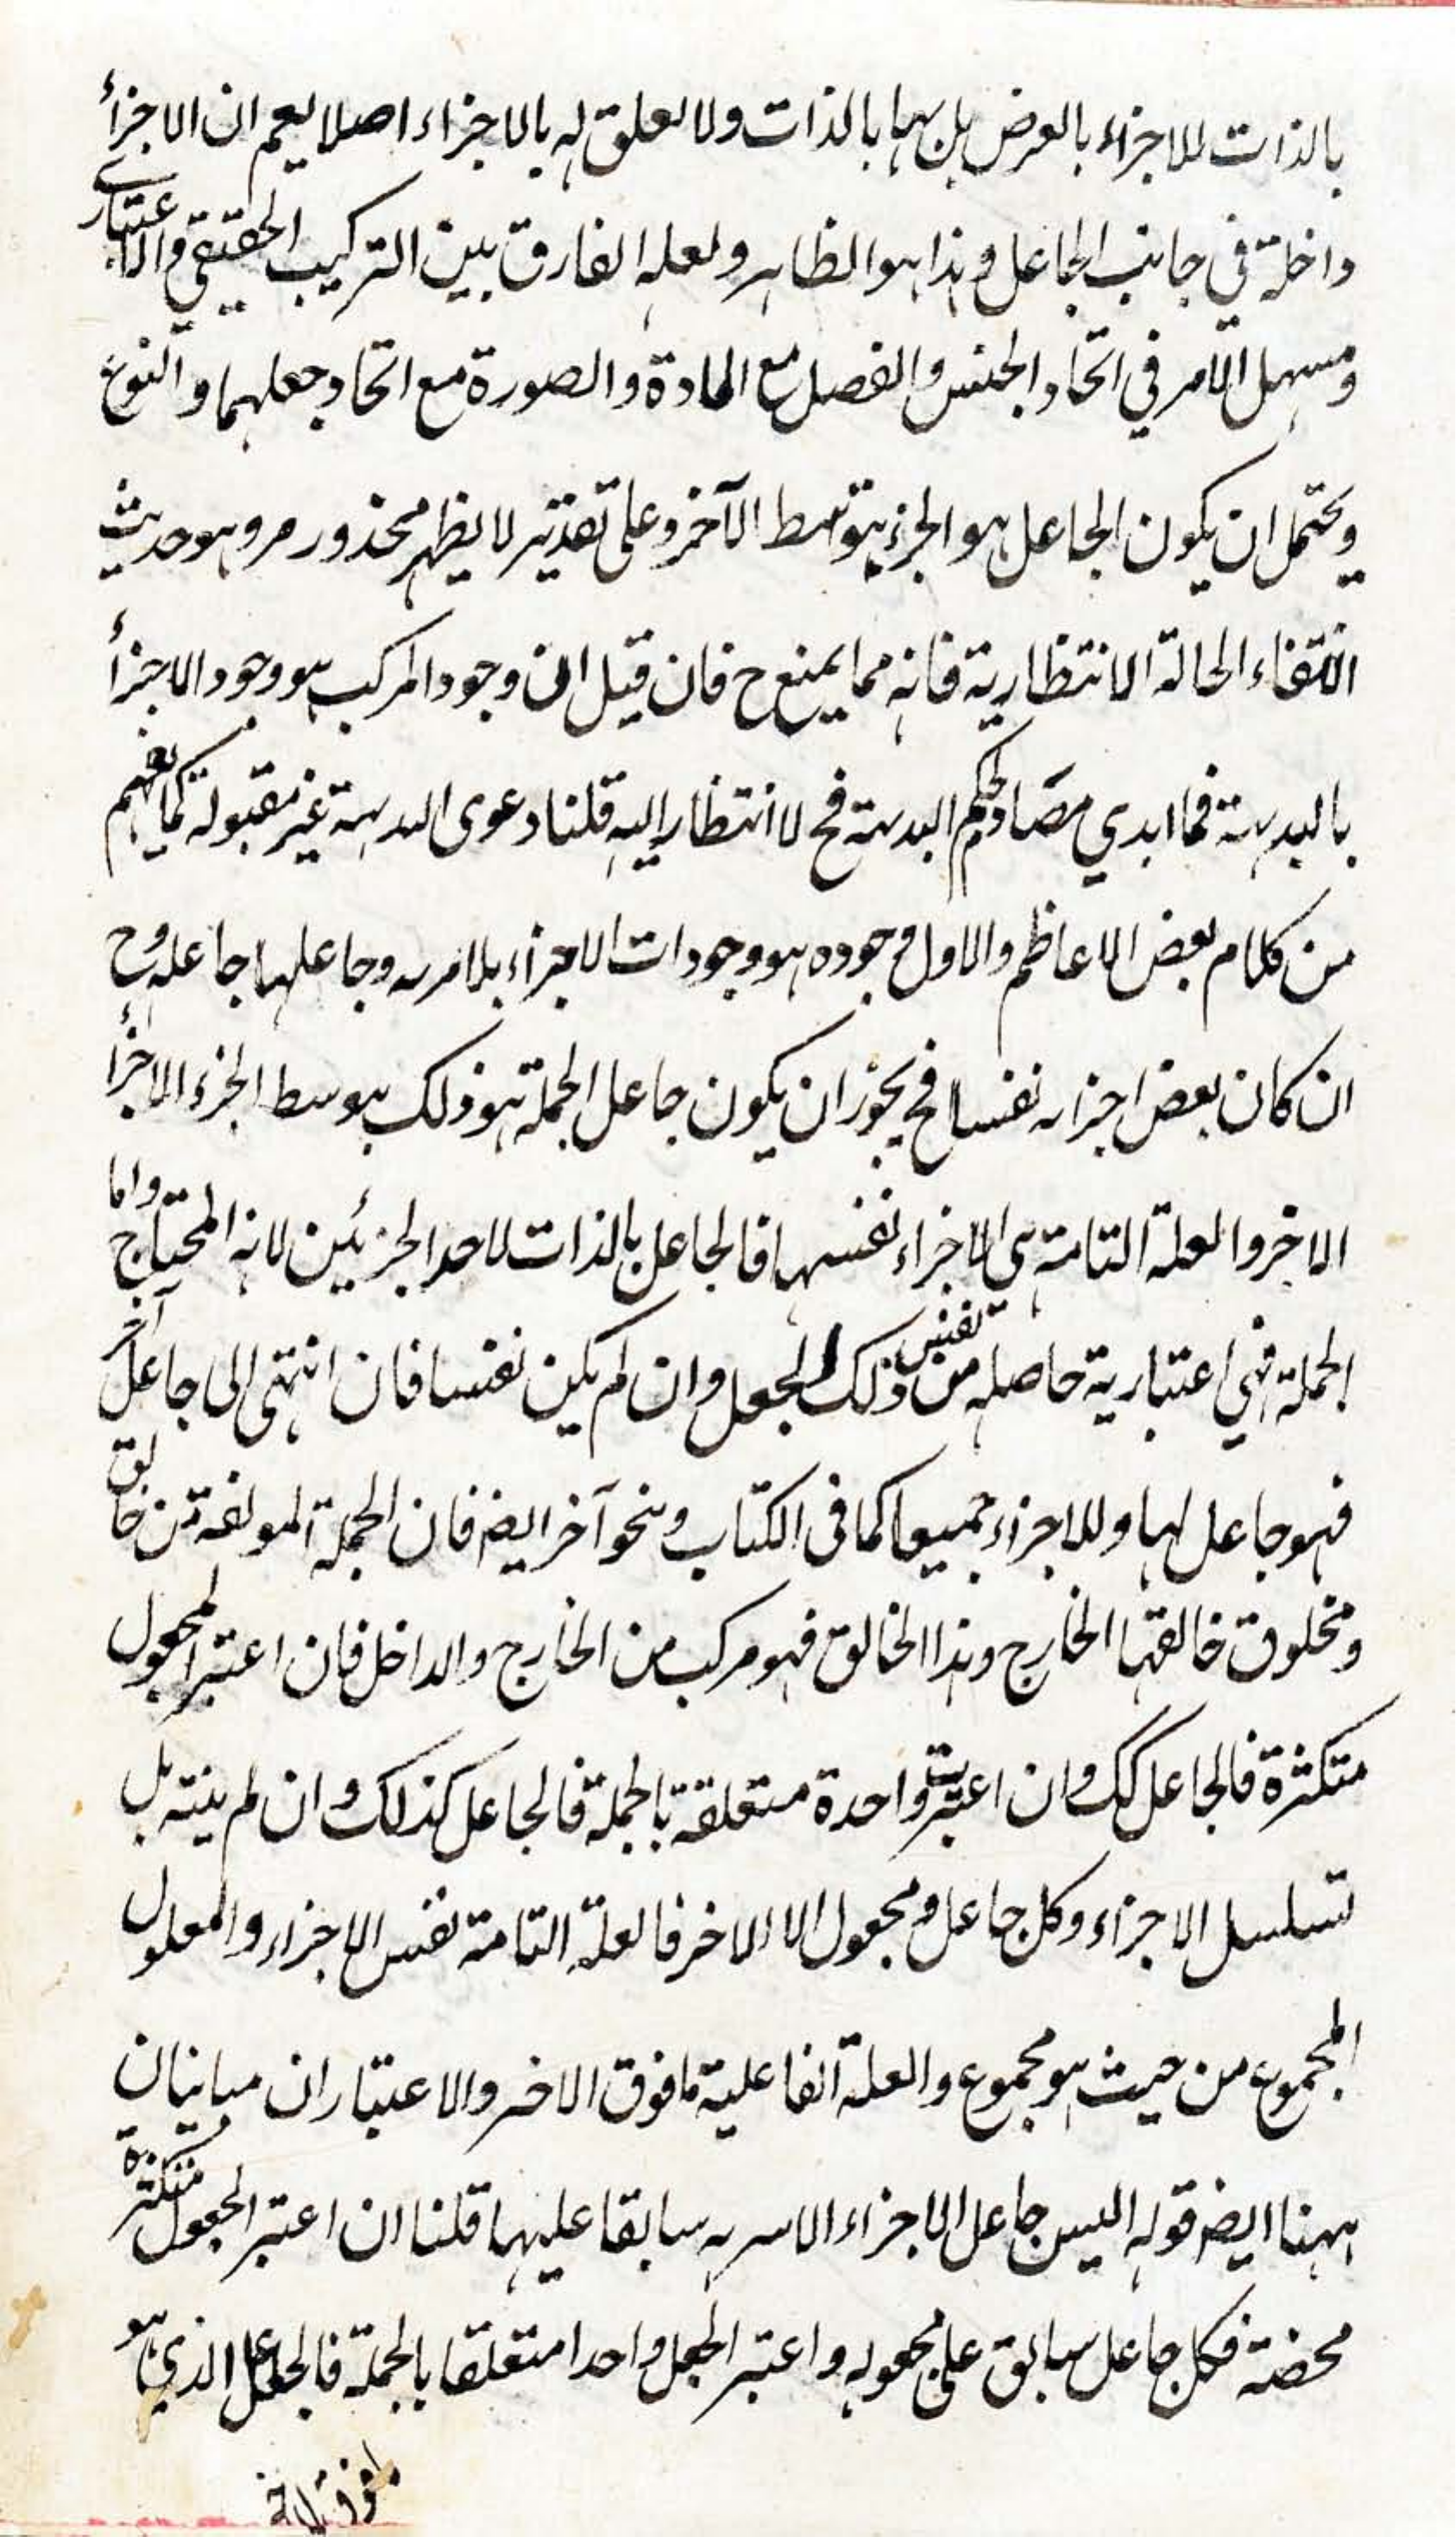 بالذات للاجزاء بالعرض بل بها بالذات ولا تعلق له بالاجزاء اصلا يعم ان الاجزأ
داخلة في جانب الجاعل وهذا هو الظاهر ولعله الفارق بين التركيب الحقيقي والاعتباري
ومسهل الأمر في اتحاد الجنس والفصل مع المادة والصورة مع اتحاد جعلهما والنوع
ويحتمل ان يكون الجاعل هو الجزء بتوسط الآخر وعلى تقدير لا يظهر محذور مر وهو حديث
انتفاء الحالة الانتظارية فانه مما يمنع ح فان قيل ان وجود المركب هو وجود الاجزأ
بالبديهة فما ابدي مصادم لحكم البديهة فح لا انتظار اليه قلنا دعوى البديهة غير مقبولة كما يفهم
من كلام بعض الاعاظم والاول وجوده هو وجودات الاجزاء بلا مرية وجاعلها جاعله وح
ان كان بعض اجزائه نفسا فح يجوز ان يكون جاعل الجملة هو ذلك بتوسط الجزء الاجزأ
الاخر والعلة التامة هي الاجزاء نفسها فالجاعل بالذات لاحد الجزئين لانه المحتاج واما
الجملة فهي اعتبارية حاصله من نفس ذلك الجعل وان لم يكن نفسا فان انتهى الى جاعل آخر
فهو جاعل لها وللاجزاء جميعا كما في الكتاب وبنحو آخر ايضا فان الجملة المولفة من خالق
ومخلوق خالقها الخارج وهذا الخالق فهو مركب من الخارج والداخل فان اعتبر المجعول
متكثرة فالجاعل كك وان اعتبرت واحدة متعلقة بالجملة فالجاعل كذلك وان لم ينته بل
تسلسل الاجزاء وكل جاعل ومجعول الا الاخر فالعلة التامة نفس الاجزاء والمعلول
المجموع من حيث هو مجموع والعلة الفاعلية ما فوق الاخر والاعتباران مباينان
ههنا ايضا قوله اليس جاعل الاجزاء الاسرية سابقا عليها قلنا ان اعتبر الجعول متكثرة
محضة فكل جاعل سابق على مجعوله واعتبر الجعل واحدا متعلقا بالجملة فالجاعل الذي هو